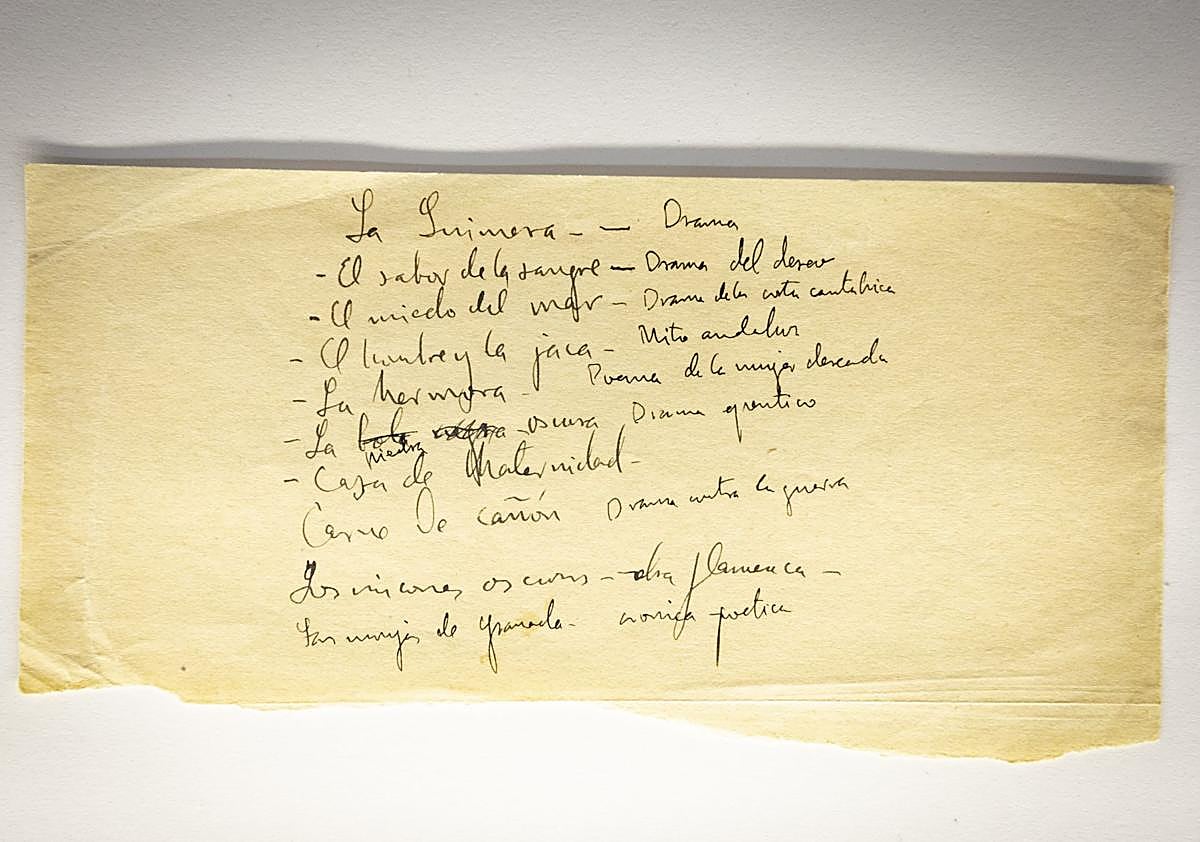 La Quimera - — Drama
- El sabor de la sangre — Drama del deseo
- El miedo del mar - Drama de la costa cantabrica
- El hombre y la jaca - Mito andaluz
- La hermosa - Poema de la mujer deseada
- La bola negra oscura Drama epentico
piedra
- Casa de Maternidad -
Carne de cañón Drama contra la guerra
Los rincones oscuros - obra flamenca -
Las monjas de Granada - cronica poetica